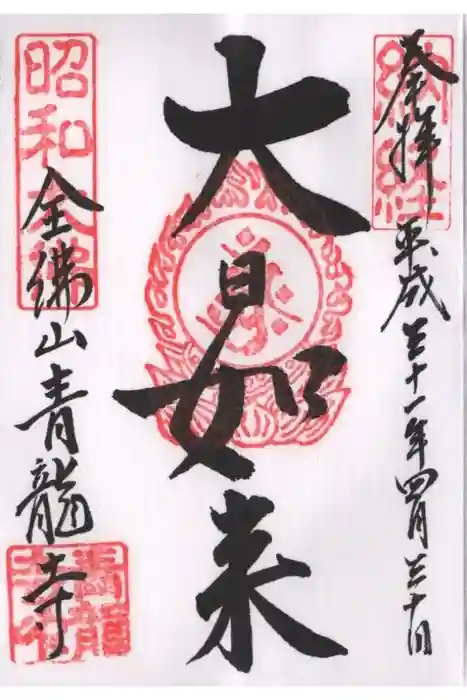 奉拝
平成三十一年四月三十日
大日如来
昭和大佛
全佛山青龍寺